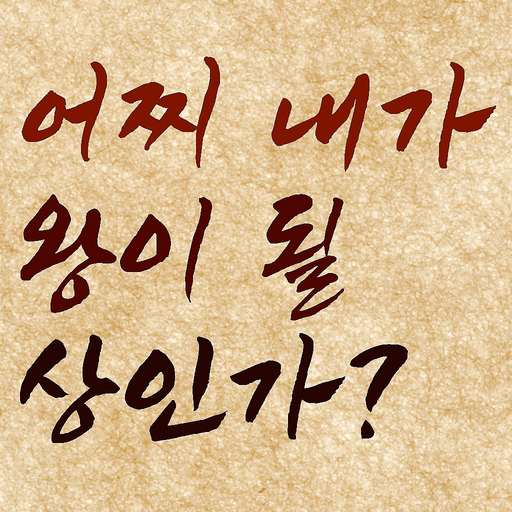 어찌 내가
왕이 될
상인가?